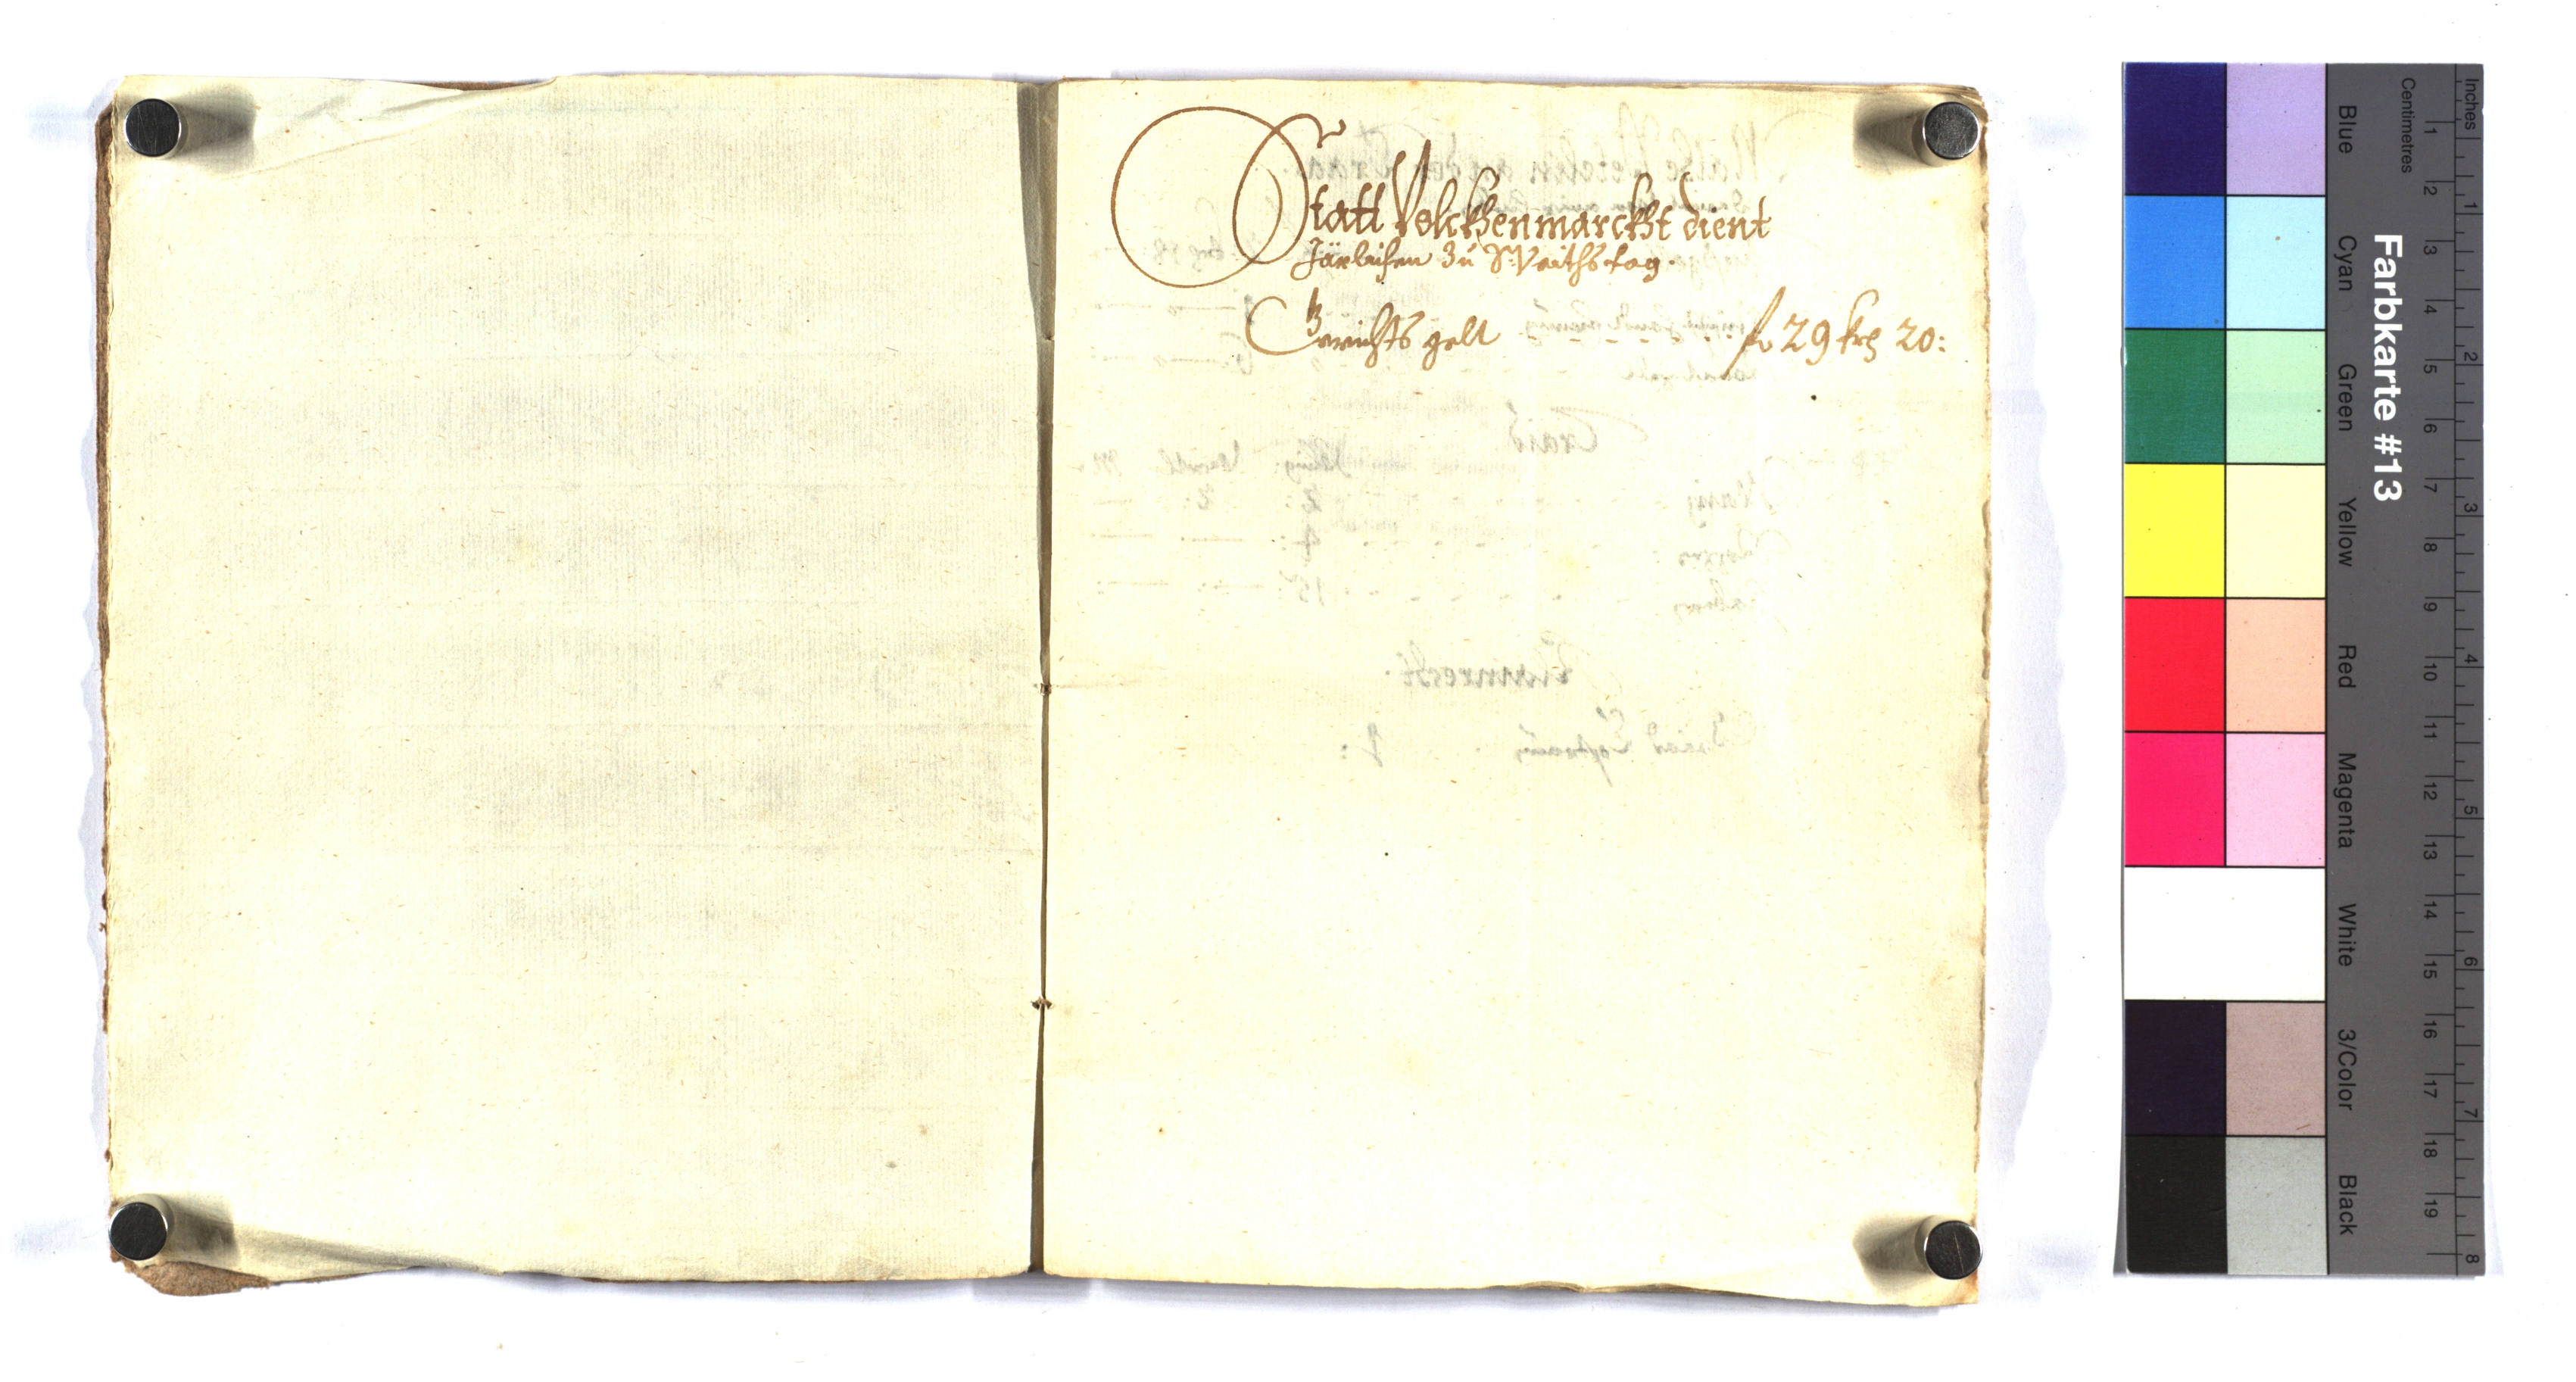 Statt Volckhenmarckht dient
Järlichen zu S Veiths tag.
Gerichts gelt fl 29 krz 20:
Farbkarte #13
Blue
Cyan
Green
Yellow
Red
Magenta
White
3/Color
Black
Centimetres
1 2 3 4 5 6 7 8 9 10 11 12 13 14 15 16 17 18 19
Inches
1 2 3 4 5 6 7 8